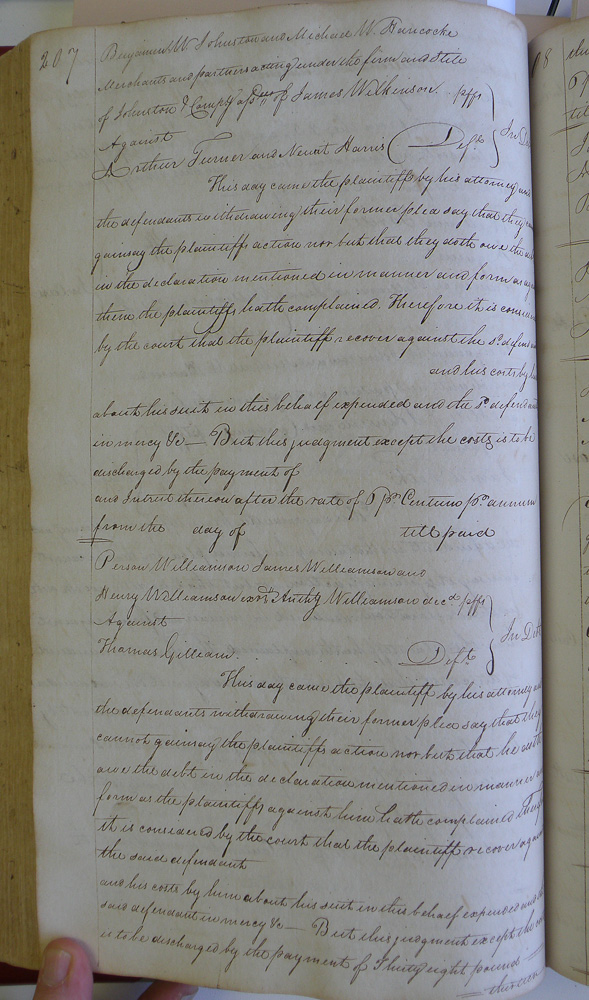 207
Benjamin W Johnston and Michael W. Hancocke
Merchants and partners acting under the firm and Stile
of Johnston & Compy of James Wilkinson. plffs
Against
Arthur Turner and Newit Harris Defts In
This day came the plaintiff by his attorney and
the defendants withdrawing their former plea say that they
gainsay the plaintiffs action nor but that they doth owe the
in the declaration mentioned in manner and form as
them the plaintiffs hath complained. Therefore it is
by the court that the plaintiff recover against the sd. defend
and his costs by
about his suit in this behalf expended and the sd. defendant
in mercy &c — But this judgment except the costs is to be
discharged by the payment of
and Intrest thereon after the rate of 6 pr. Centum pr. annum
from the day of till paid
Person Williamson James Williamson and
Henry Williamson exrs. Anthy Williamson decd. plffs
Against
Thomas Gilliam. Deft. In Debt
This day came the plaintiff by his attorney
the defendants withdrawing their former plea say that they
cannot gainsay the plaintiffs action nor but that he doth
owe the debt in the declaration mentioned in manner
form as the plaintiffs against him hath complained
it is considered by the court that the plaintiff recover against
the said defendant
and his costs by him about his suit in this behalf expended and
said defendant in mercy &c — But this judgment except the
is to be discharged by the payment of Thirty eight pounds
thirteen
8